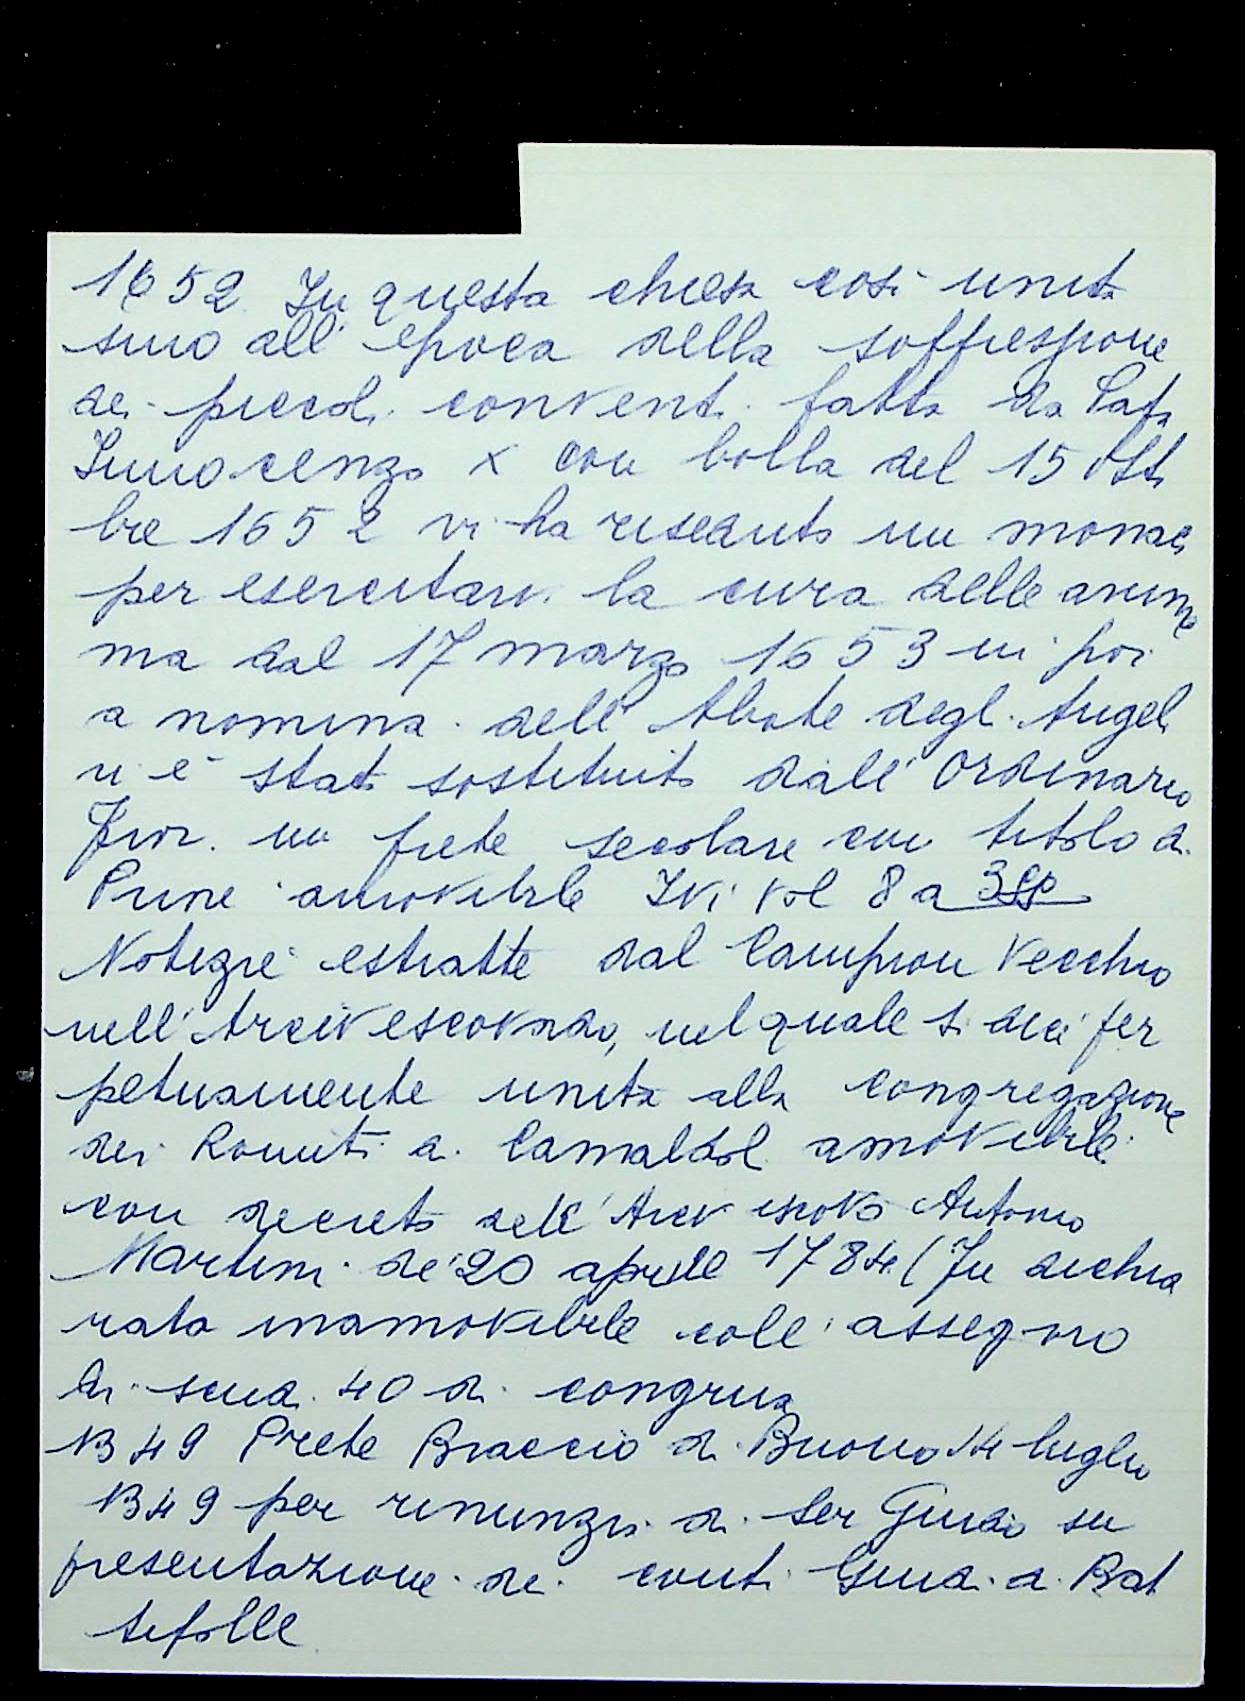 1652. In questa chiesa così unita
sino all'epoca della soppressione
dei piccoli conventi fatta da Papa
Innocenzo X con bolla del 15 Otto
bre 1652 vi ha riseduto un monaco
per esercitarvi la cura delle anime
ma dal 17 marzo 1653 in poi
a nomina dell'Abate degli Angeli
vi è stato sostituito dall'Ordinario
Fior. un prete secolare con titolo di
Priore amovibile Ivi vol 8 a
Notizie estratte dal Campion Vecchio
nell'Arcivescovado, nel quale si dice per
petuamente unita alla Congregazione
dei Romiti di Camaldoli amovibile
con decreto dell'Arcivescovo Antonio
Martini de' 20 aprile 1784 (Fu dichia
rata inamovibile coll'assegno
di scudi 40 di congrua
1349 Prete Braccio di Buono 14 luglio
1349 per renunzia di Ser Guido su
presentazione dei conti Guidi di Bat
tifolle